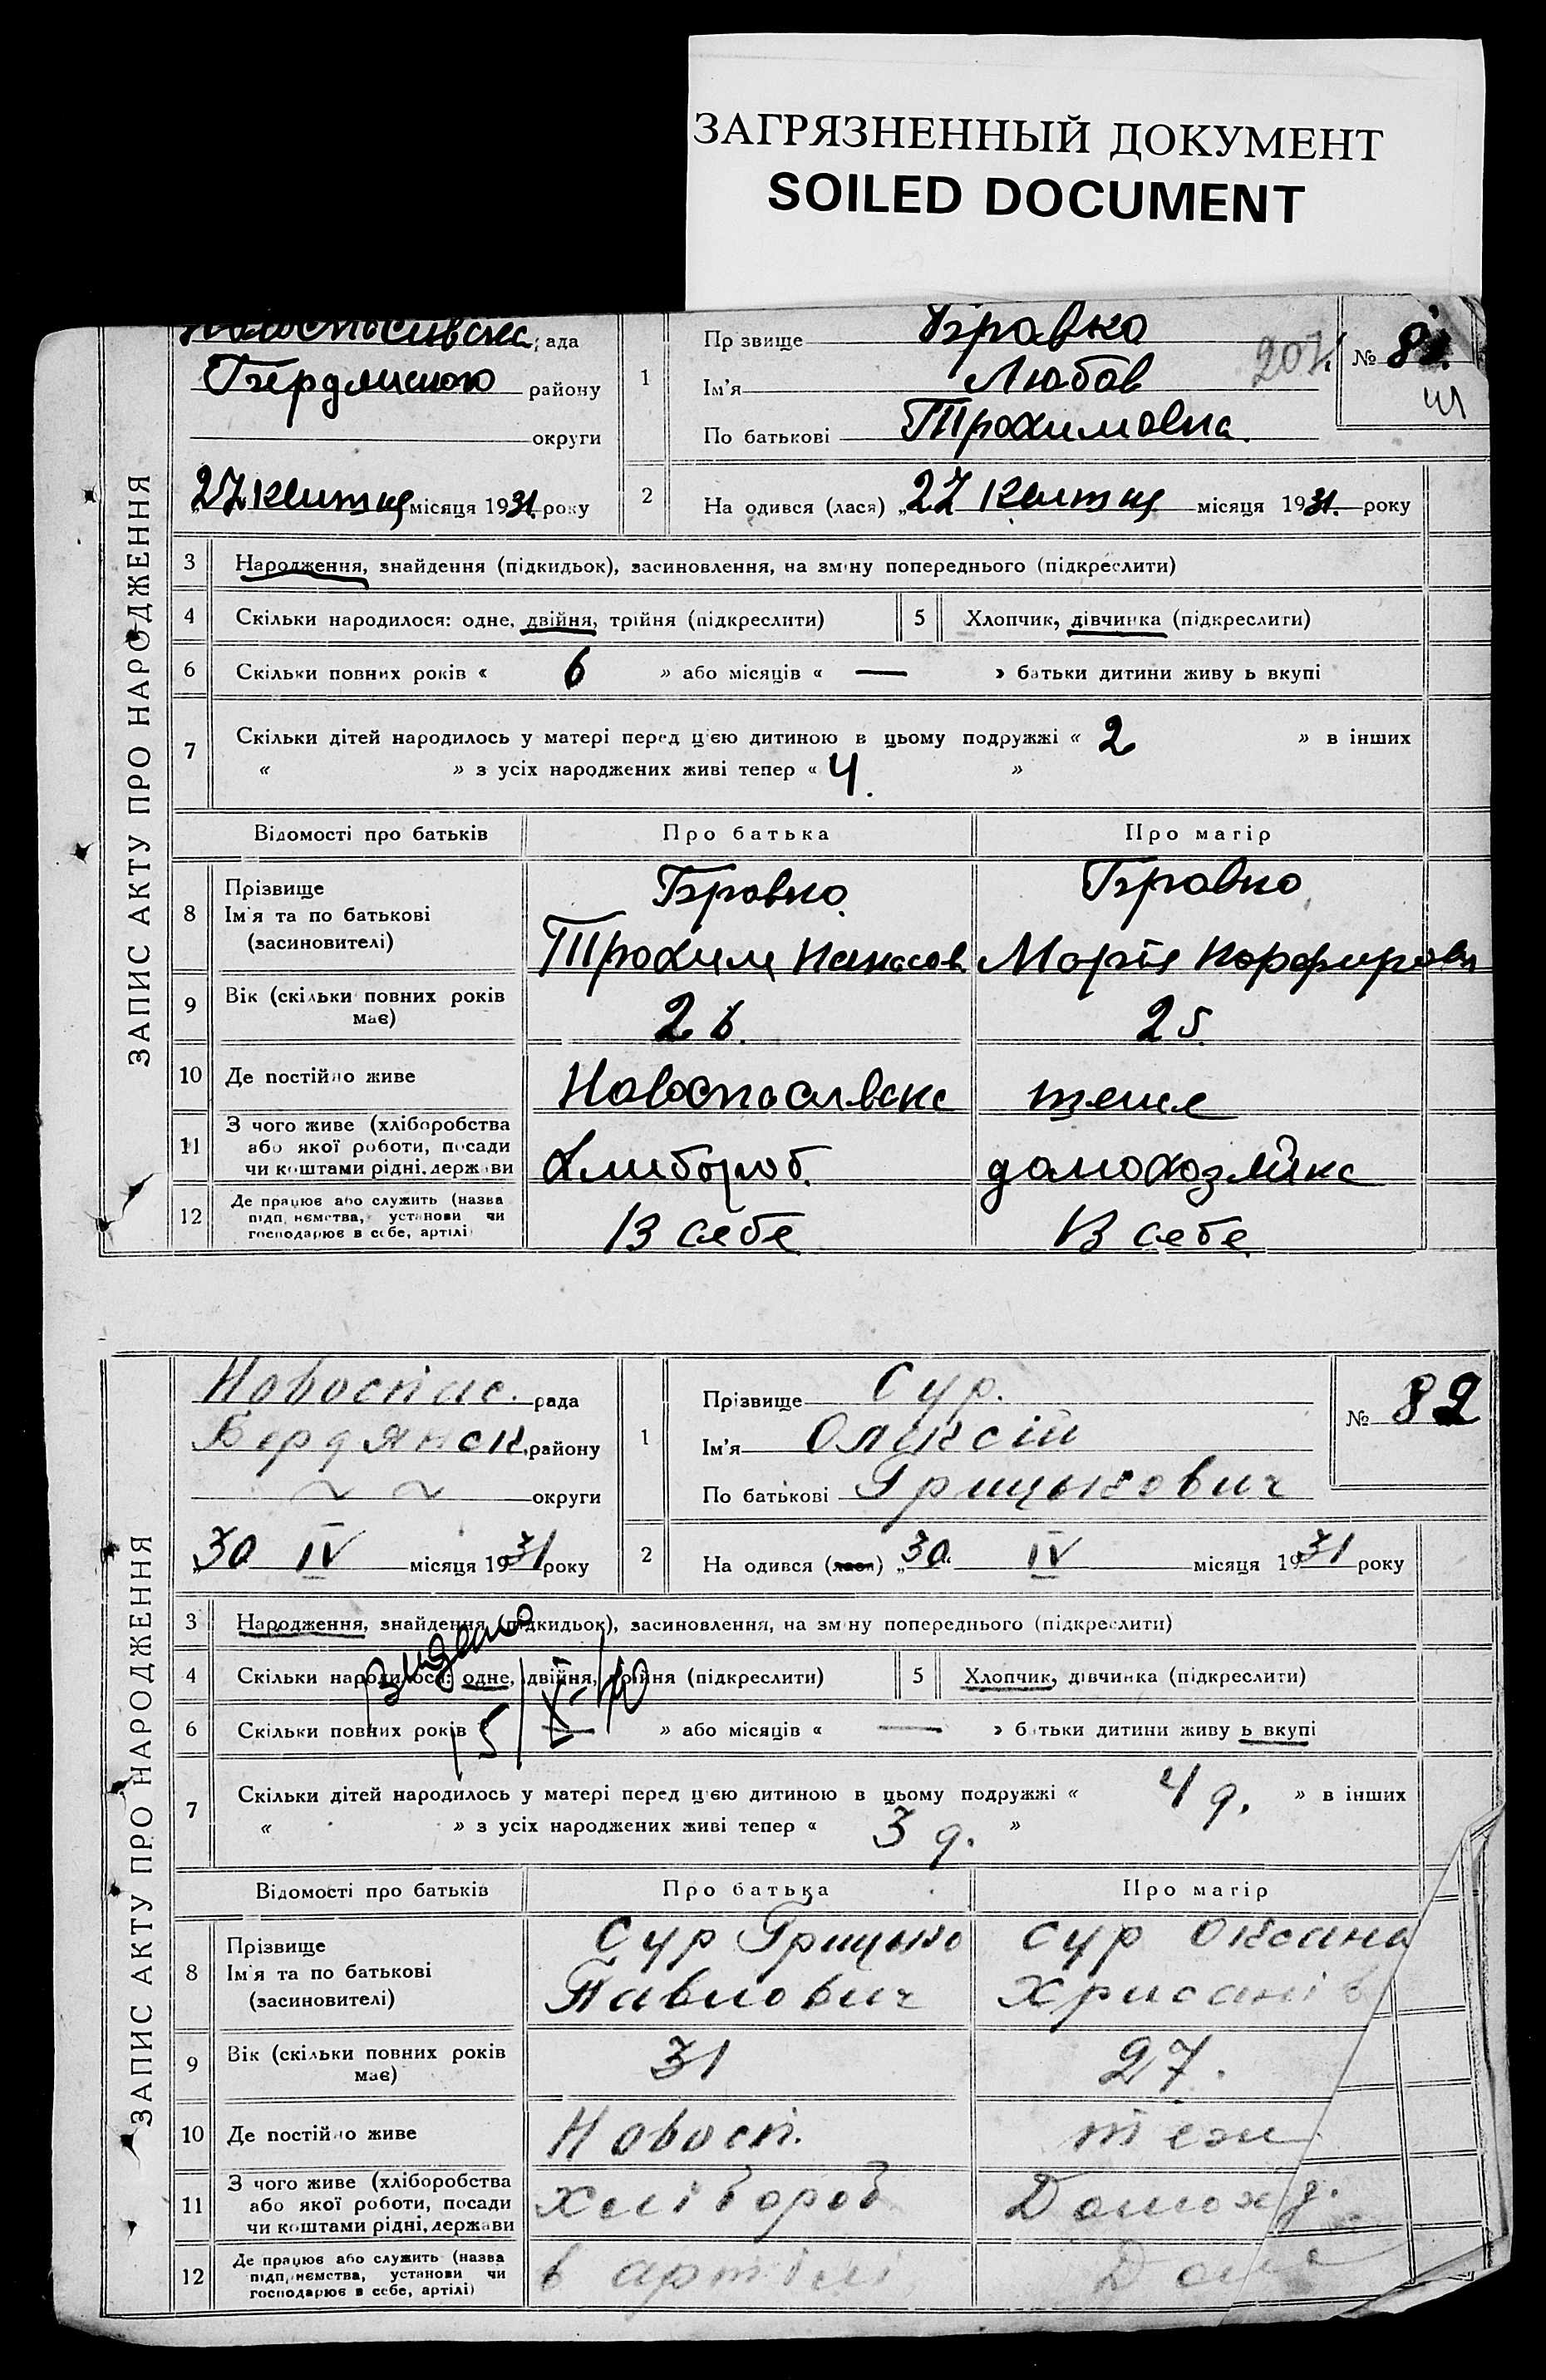 ЗАГРЯЗНЕННЫЙ ДОКУМЕНТ
SOILED DOCUMENT
ЗАПИС АКТУ ПРО НАРОДЖЕННЯ
Новоспасивска рада
Бердянського району
округи
27 квитня місяця 1931. року
1
Прізвище Бравко
Ім'я Любов
По батькові Трохимовна.
207.
№ 81.
2
На одився (лася) „27 квитня місяця 1931. року
3 Народження, знайдення (підкидьок), засиновлення, на зміну попереднього (підкреслити)
4 Скільки народилося: одне, двійня, трійня (підкреслити) 5 Хлопчик, дівчинка (підкреслити)
6 Скільки повних років « 6 » або місяців « — » батьки дитини живу ь вкупі
7 Скільки дітей народилось у матері перед цією дитиною в цьому подружжі « 2 » в інших
« » з усіх народжених живі тепер « 4. »
Відомості про батьків Про батька Про матір
8 Прізвище Бравко. Бравко,
Ім'я та по батькові
(засиновителі) Трохим Панасов. Мария Порфирови
9 Вік (скільки повних років має) 26. 25.
10 Де постійно живе Новоспасивска теже
11 З чого живе (хліборобства
або якої роботи, посади
чи коштами рідні, держави Хлибороб. домохозяйка
12 Де працює або служить (назва
підприємства, установи чи
господарює в себе, артілі) В себе В себе
ЗАПИС АКТУ ПРО НАРОДЖЕННЯ
Новоспас. рада
Бердянськ. району
~ ~ округи
„30 IV місяця 1931 року
1
Прізвище Сур.
Ім'я Олексій
По батькові Грицькович
№ 82
2
На одився (лася) „30“ IV місяця 1931 року
3 Народження, знайдення (підкидьок), засиновлення, на зміну попереднього (підкреслити)
Видано
4 Скільки народилося: одне, двійня, трійня (підкреслити) 5 Хлопчик, дівчинка (підкреслити)
15/X-40
6 Скільки повних років » або місяців « — » батьки дитини живу ь вкупі
7 Скільки дітей народилось у матері перед цією дитиною в цьому подружжі « 4 д. » в інших
« » з усіх народжених живі тепер « 3 д. »
Відомості про батьків Про батька Про матір
8 Прізвище Сур Грицько Сур Оксана
Ім'я та по батькові Павлович Хрисанів
(засиновителі)
9 Вік (скільки повних років має) 31 27.
10 Де постійно живе Новосп. теж
11 З чого живе (хліборобства
або якої роботи, посади
чи коштами рідні, держави Хлібороб Домохд.
12 Де працює або служить (назва
підприємства, установи чи
господарює в себе, артілі) в артілі